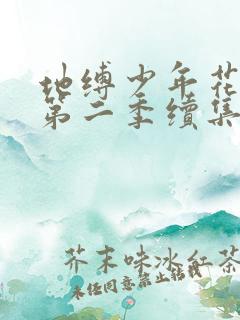 地缚少年花
第二季续集
芥末味冰红茶
未经同意禁止转载